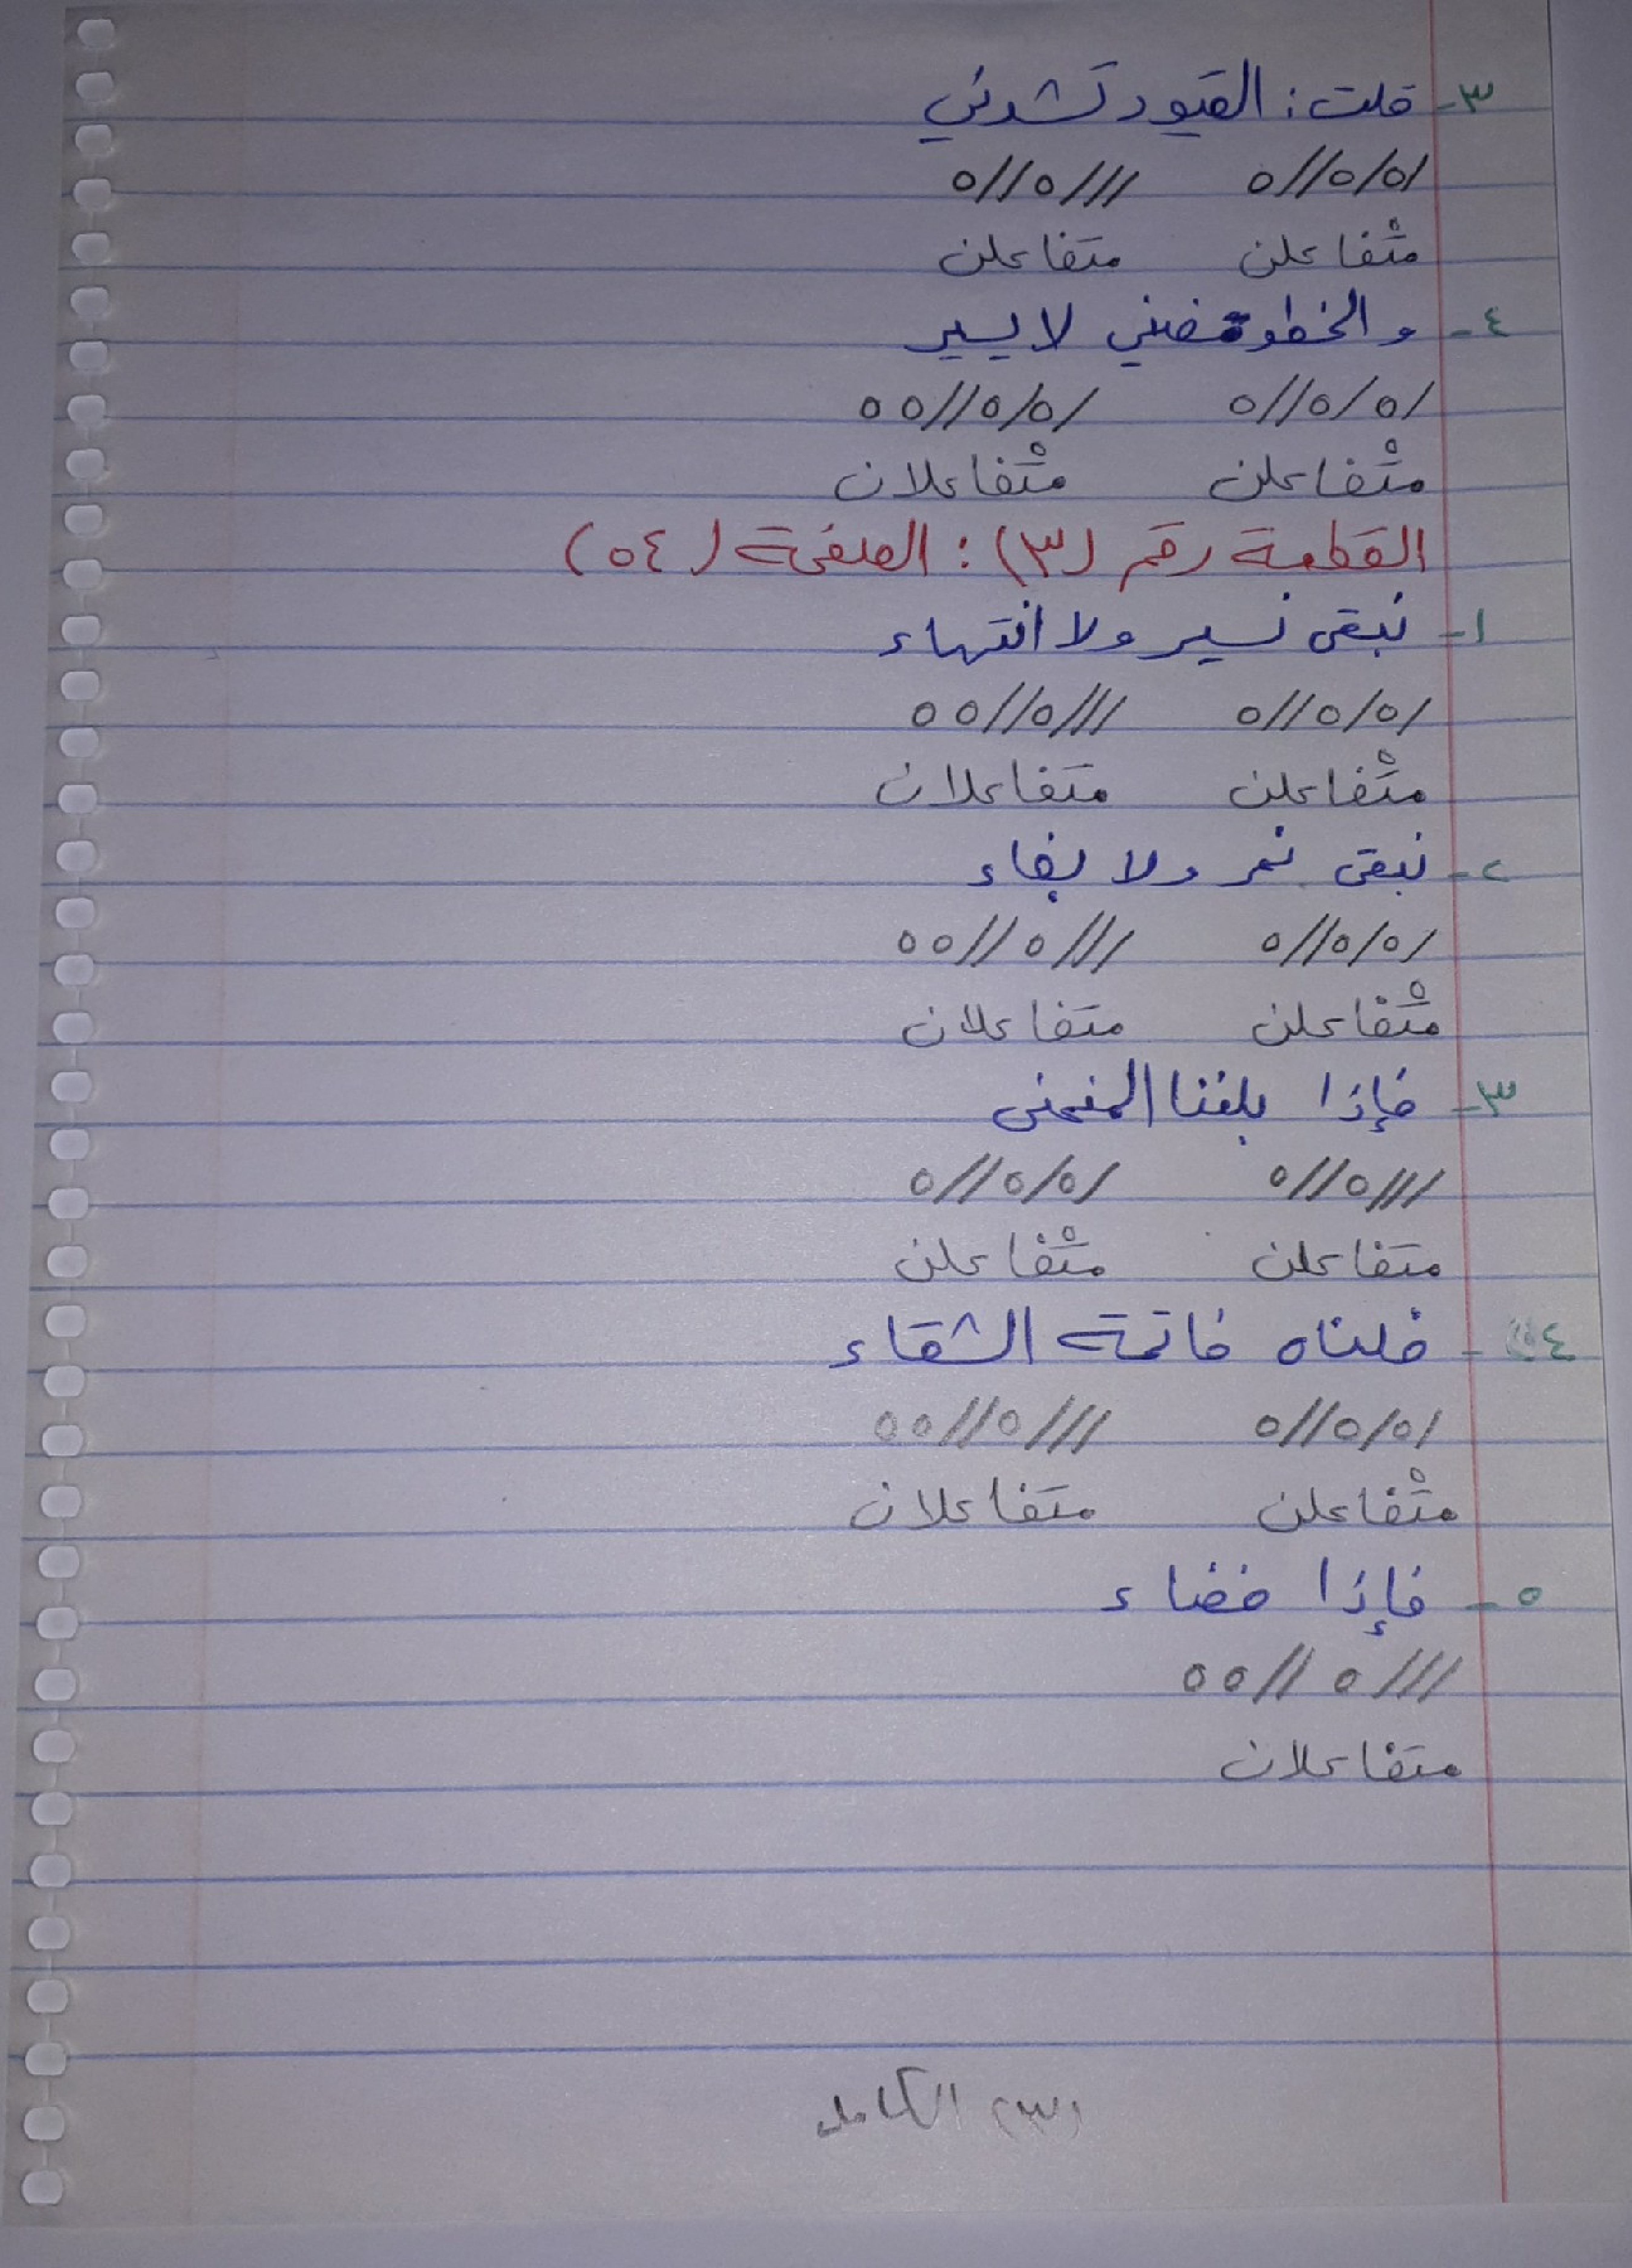 ٣- قلت: القيود تشدني
/٥/٥//٥ ///٥//٥
متْفاعلن متفاعلن
٤- والخطو مضني لا يسير
/٥/٥//٥ /٥/٥//٥٥
متْفاعلن متْفاعلان
القطعة رقم (٣): الصفحة (٥٤)
١- نبقى نسير ولا انتهاء
/٥/٥//٥ ///٥//٥٥
متْفاعلن متفاعلان
٢- نبقى نمر ولا بقاء
/٥/٥//٥ ///٥//٥٥
متْفاعلن متفاعلان
٣- فإذا بلغنا المنحنى
///٥//٥ /٥/٥//٥
متفاعلن متْفاعلن
٤- خلناه خاتمة الشقاء
/٥/٥//٥ ///٥//٥٥
متْفاعلن متفاعلان
٥- فإذا فضاء
///٥//٥٥
متفاعلان
(٣) الكامل